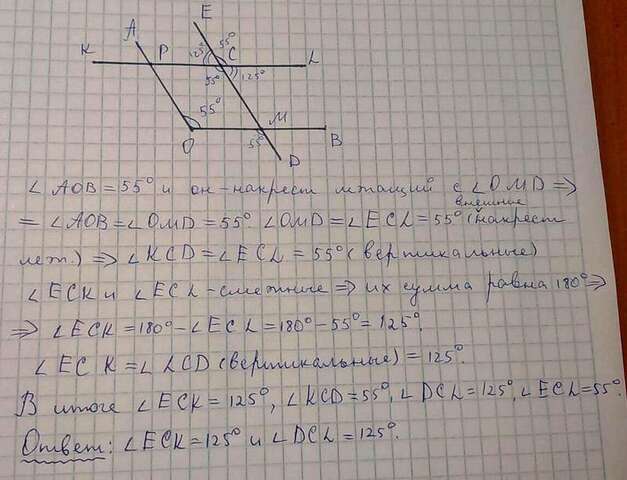 E
A
K P 125° 55° C L
55° 125°
55°
O 55° M B
D
∠AOB=55° и он-накрест лежащий с ∠OMD ⇒
= ∠AOB=∠OMD=55°. ∠OMD=∠ECL=55° (внешние накрест
леж.) ⇒ ∠KCD=∠ECL=55° (вертикальные)
∠ECK и ∠ECL-смежные ⇒ их сумма равна 180° ⇒
⇒ ∠ECK=180°-∠ECL=180°-55°=125°.
∠ECK=∠LCD (вертикальные)=125°.
В итоге ∠ECK=125°, ∠KCD=55°, ∠DCL=125°, ∠ECL=55°.
Ответ: ∠ECK=125° и ∠DCL=125°.